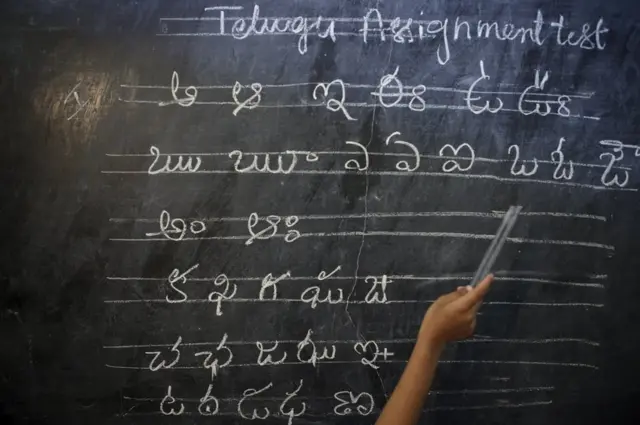 Telugu Assignment test
అ ఆ ఇ ఈ ఉ ఊ
ఋ ౠ ఎ ఏ ఐ ఒ ఓ ఔ
అం ఆః
క ఖ గ ఘ ఙ
చ ఛ జ ఝ ఞ
ట ఠ డ ఢ ణ